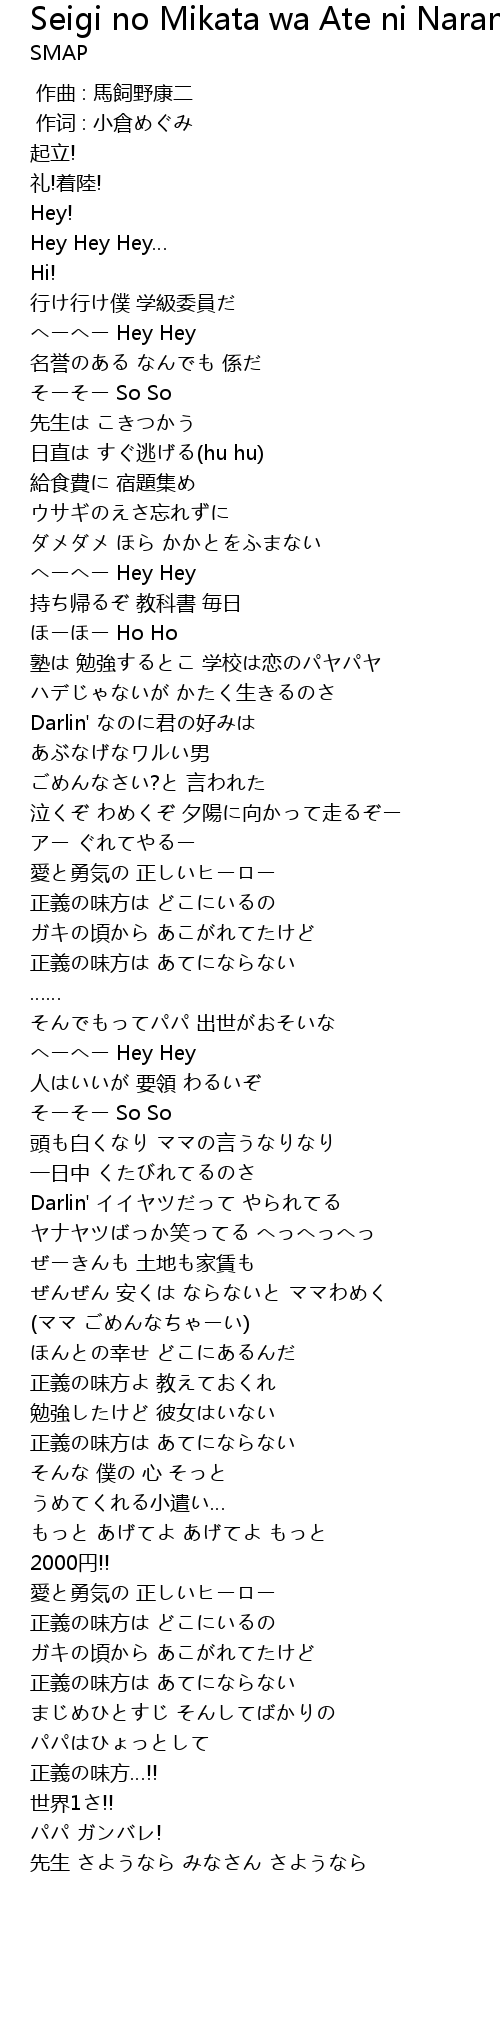 Seigi no Mikata wa Ate ni Naran
SMAP
作曲 : 馬飼野康二
作词 : 小倉めぐみ
起立!
礼!着陸!
Hey!
Hey Hey Hey...
Hi!
行け行け僕 学級委員だ
へーへー Hey Hey
名誉のある なんでも 係だ
そーそー So So
先生は こきつかう
日直は すぐ逃げる(hu hu)
給食費に 宿題集め
ウサギのえさ忘れずに
ダメダメ ほら かかとをふまない
へーへー Hey Hey
持ち帰るぞ 教科書 毎日
ほーほー Ho Ho
塾は 勉強するとこ 学校は恋のパヤパヤ
ハデじゃないが かたく生きるのさ
Darlin' なのに君の好みは
あぶなげなワルい男
ごめんなさい?と 言われた
泣くぞ わめくぞ 夕陽に向かって走るぞー
アー ぐれてやるー
愛と勇気の 正しいヒーロー
正義の味方は どこにいるの
ガキの頃から あこがれてたけど
正義の味方は あてにならない
......
そんでもってパパ 出世がおそいな
へーへー Hey Hey
人はいいが 要領 わるいぞ
そーそー So So
頭も白くなり ママの言うなりなり
一日中 くたびれてるのさ
Darlin' イイヤツだって やられてる
ヤナヤツばっか笑ってる へっへっへっ
ぜーきんも 土地も家賃も
ぜんぜん 安くは ならないと ママわめく
(ママ ごめんなちゃーい)
ほんとの幸せ どこにあるんだ
正義の味方よ 教えておくれ
勉強したけど 彼女はいない
正義の味方は あてにならない
そんな 僕の 心 そっと
うめてくれる小遣い...
もっと あげてよ あげてよ もっと
2000円!!
愛と勇気の 正しいヒーロー
正義の味方は どこにいるの
ガキの頃から あこがれてたけど
正義の味方は あてにならない
まじめひとすじ そんしてばかりの
パパはひょっとして
正義の味方...!!
世界1さ!!
パパ ガンバレ!
先生 さようなら みなさん さようなら